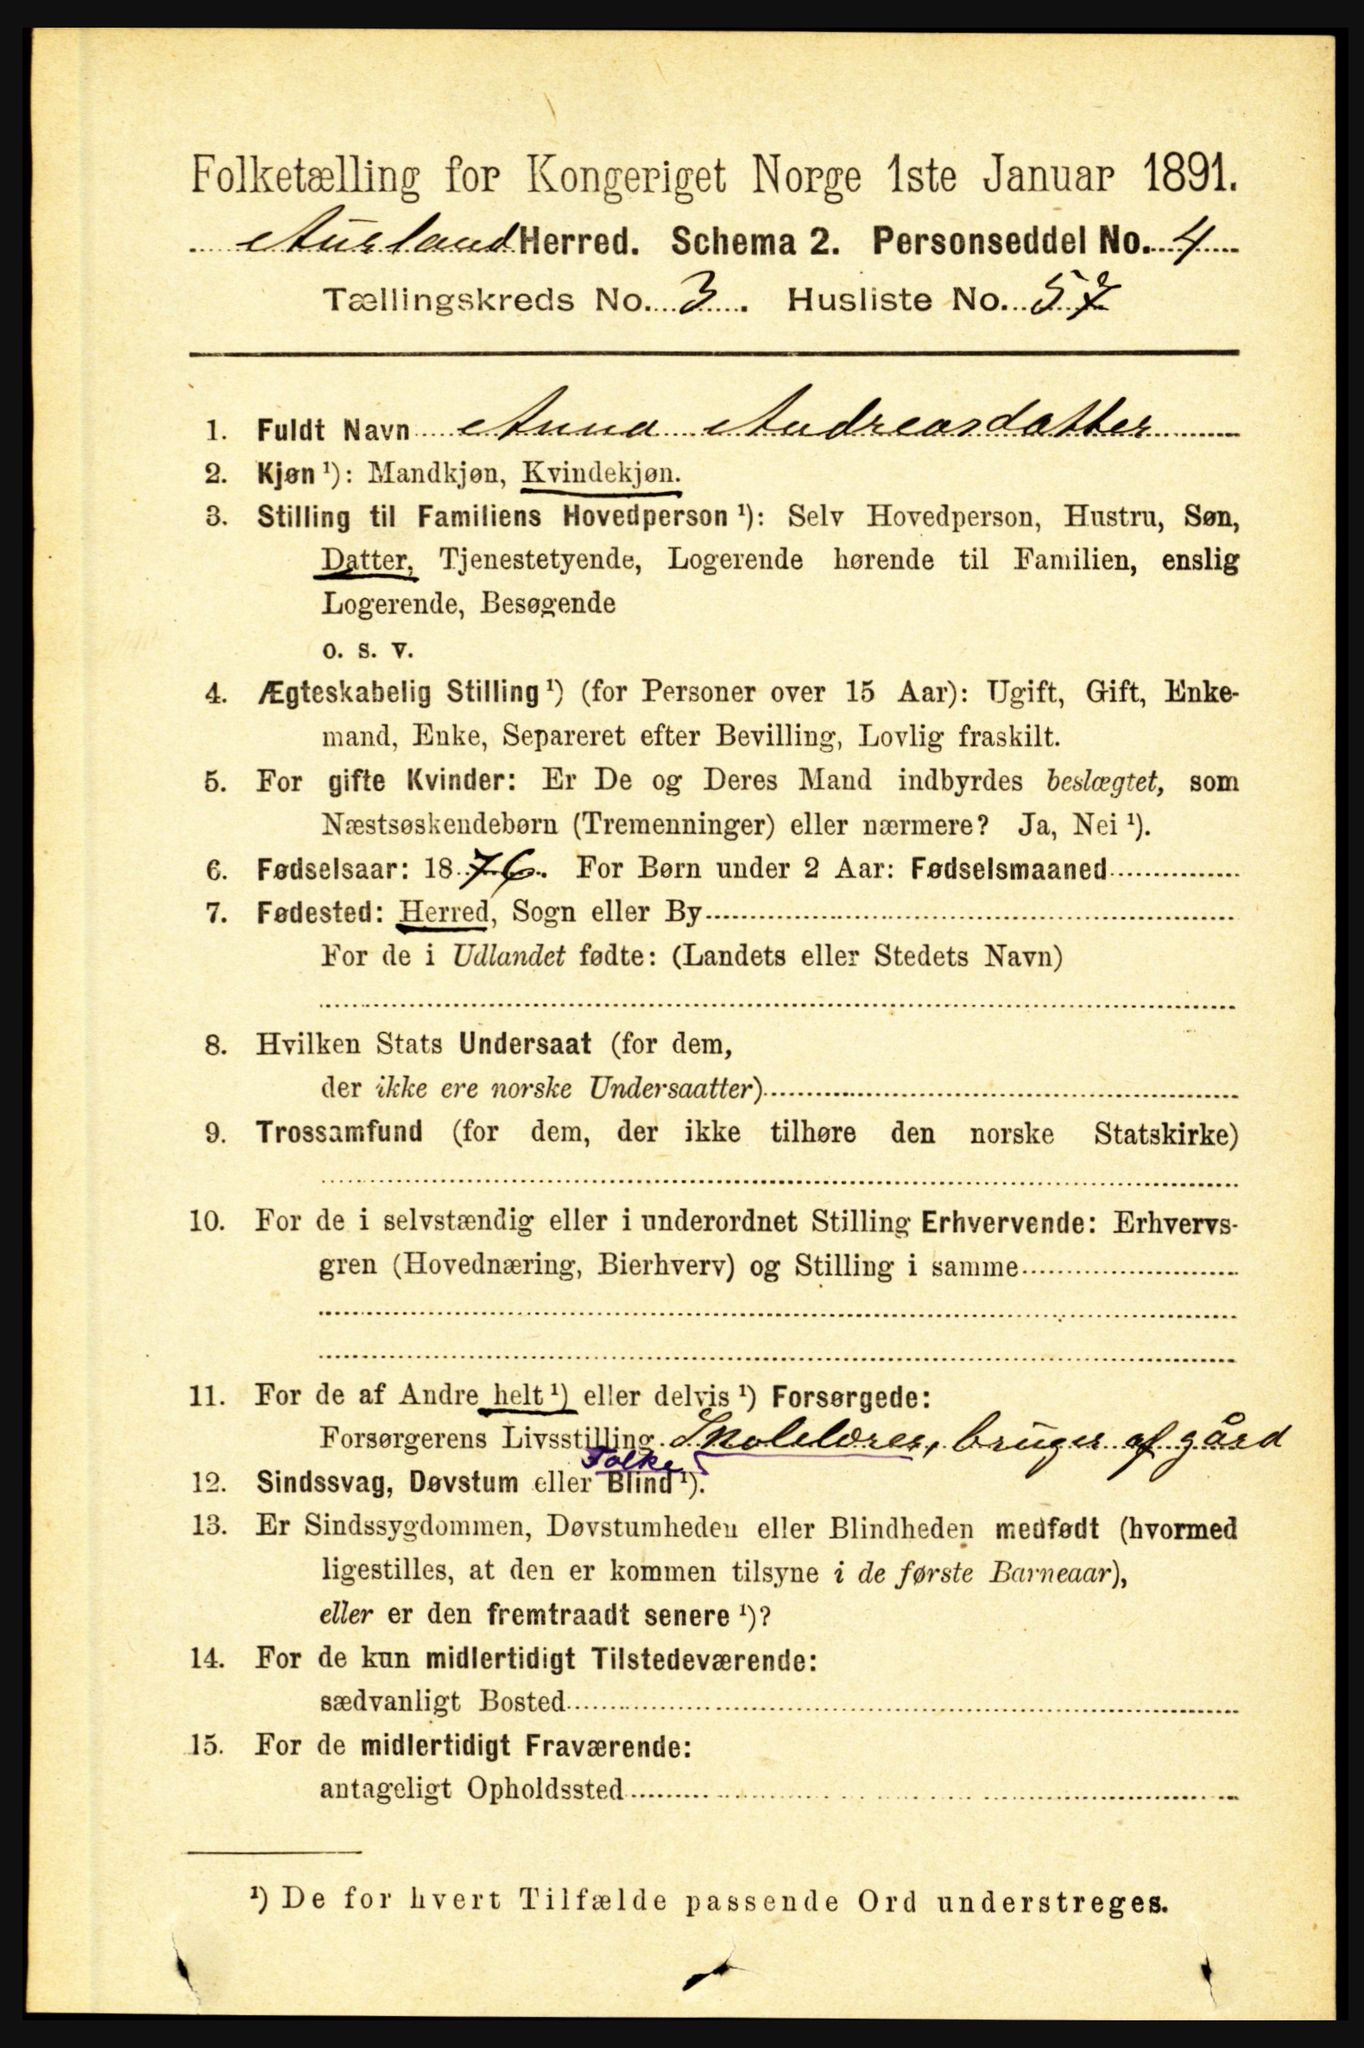 Folketælling for Kongeriget Norge 1ste Januar 1891.
Aurland Herred. Schema 2. Personseddel No. 4
Tællingskreds No. 3. Husliste No. 57
1. Fuldt Navn Anna Andreasdatter
2. Kjøn ¹): Mandkjøn, Kvindekjøn.
3. Stilling til Familiens Hovedperson ¹): Selv Hovedperson, Hustru, Søn,
Datter, Tjenestetyende, Logerende hørende til Familien, enslig
Logerende, Besøgende
o. s. v.
4. Ægteskabelig Stilling ¹) (for Personer over 15 Aar): Ugift, Gift, Enke-
mand, Enke, Separeret efter Bevilling, Lovlig fraskilt.
5. For gifte Kvinder: Er De og Deres Mand indbyrdes beslægtet, som
Næstsøskendebørn (Tremenninger) eller nærmere? Ja, Nei ¹).
6. Fødselsaar: 1876. For Børn under 2 Aar: Fødselsmaaned
7. Fødested: Herred, Sogn eller By
For de i Udlandet fødte: (Landets eller Stedets Navn)
8. Hvilken Stats Undersaat (for dem,
der ikke ere norske Undersaatter)
9. Trossamfund (for dem, der ikke tilhøre den norske Statskirke)
10. For de i selvstændig eller i underordnet Stilling Erhvervende: Erhvervs-
gren (Hovednæring, Bierhverv) og Stilling i samme
11. For de af Andre helt ¹) eller delvis ¹) Forsørgede:
Forsørgerens Livsstilling Skolelærer, bruger af gård
Folke
12. Sindssvag, Døvstum eller Blind ¹).
13. Er Sindssygdommen, Døvstumheden eller Blindheden medfødt (hvormed
ligestilles, at den er kommen tilsyne i de første Barneaar),
eller er den fremtraadt senere ¹)?
14. For de kun midlertidigt Tilstedeværende:
sædvanligt Bosted
15. For de midlertidigt Fraværende:
antageligt Opholdssted
¹) De for hvert Tilfælde passende Ord understreges.